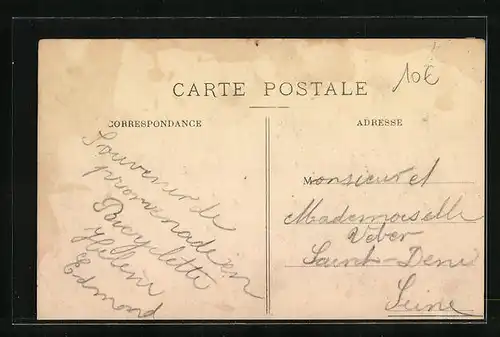 CARTE POSTALE
10€
CORRESPONDANCE
ADRESSE
Souvenir de
promenade en
Bicyclette
Helene
Edmond
Monsieur et
Mademoiselle
Veber
Saint-Denis
Seine